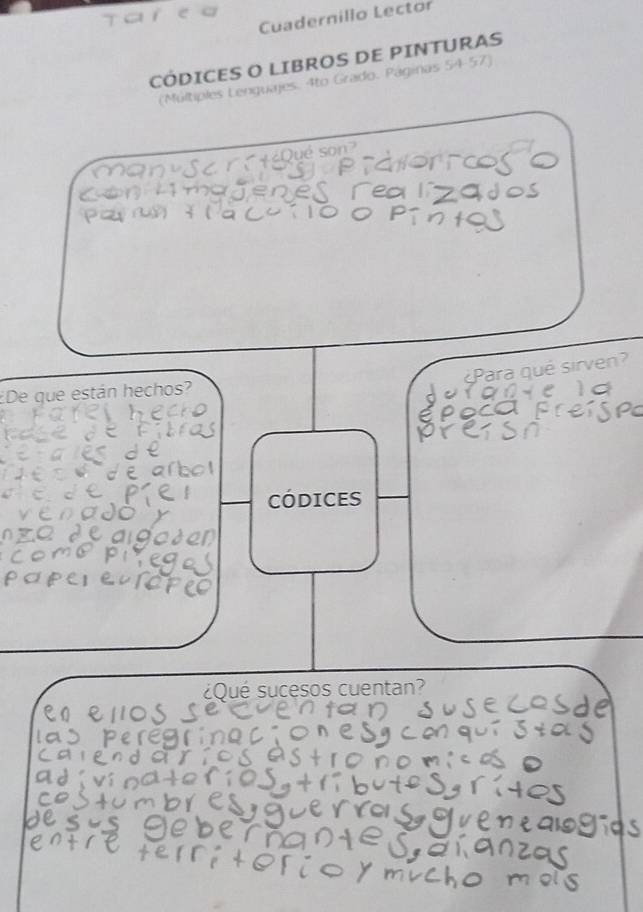 Tarea
Cuadernillo Lector
CÓDICES O LIBROS DE PINTURAS
(Múltiples Lenguajes. 4to Grado. Páginas 54-57)
¿Qué son?
manuscritos pictoricos o
con imagenes realizados
por un tlacuilo o pintos
¿De que están hechos?
hecho
de fibras
de
de arbol
de piel
venado y
nza de algodon
como pliegas
papel europeo
¿Para qué sirven?
durante la
época preispa
preisn
CÓDICES
¿Qué sucesos cuentan?
en ellos se cuentan susecosde
las peregrinaciones, conquistas
calendarios astronomicos o
adivinatorios, tributos, ritos
costumbres, guerras, guenealogias
de sus gobernantes, alianzas
entre territorio y mucho mas